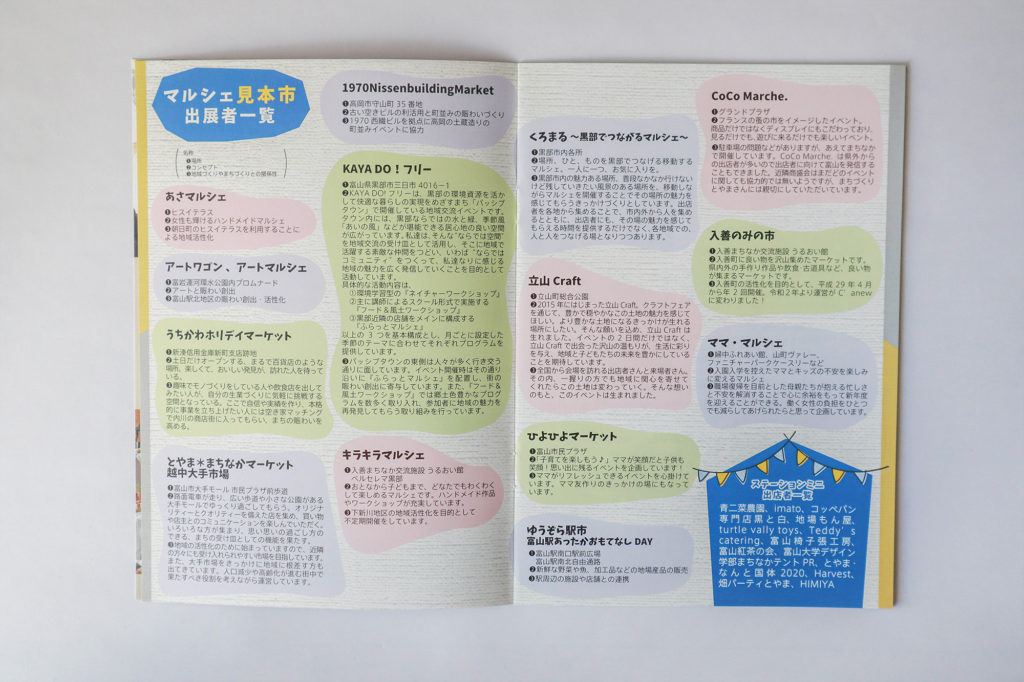 マルシェ見本市
出展者一覧
名称
❶場所
❷コンセプト
❸地域づくりやまちづくりとの関係性
あさマルシェ
❶ヒスイテラス
❷女性も輝けるハンドメイドマルシェ
❸朝日町のヒスイテラスを利用することに
よる地域活性化
アートワゴン 、アートマルシェ
❶富岩運河環水公園内プロムナード
❷アートと賑わい創出
❸富山駅北地区の賑わい創出・活性化
うちかわホリデイマーケット
❶新湊信用金庫新町支店跡地
❷土日だけオープンする、まるで百貨店のような
場所。楽しくて、おいしい発見が、訪れた人を待って
いる。
❸趣味でモノづくりをしている人や飲食店を出して
みたい人が、自分の生業づくりに気軽に挑戦する
空間となっている。ここで自信や実績を作り、本格
的に事業を立ち上げたい人には空き家マッチング
で内川の商店街に入ってもらい、まちの賑わいを
高める。
とやま＊まちなかマーケット
越中大手市場
❶富山市大手モール 市民プラザ前歩道
❷路面電車が走り、広い歩道や小さな公園がある
大手モールでゆっくり過ごしてもらう。オリジナ
リティーとクオリティーを備えた店を集め、買い物
や店主とのコミュニケーションを楽しんでいただく。
いろいろな方が集まり、思い思いの過ごし方の
できる、まちの受け皿としての機能を果たす。
❸地域の活性化のために始まっていますので、近隣
の方々にも受け入れられやすい市場を目指しています。
また、大手市場をきっかけに地域に根差す方も
出てきています。人口減少や高齢化が進む街中で
果たすべき役割を考えながら運営しています。
1970NissenbuildingMarket
❶高岡市守山町 35 番地
❷古い空きビルの利活用と町並みの賑わいづくり
❸1970 西繊ビルを拠点に高岡の土蔵造りの
町並みイベントに協力
KAYA DO！フリー
❶富山県黒部市三日市 4016−1
❷KAYA DO！フリーは、黒部の環境資源を活か
して快適な暮らしの実現をめざすまち「パッシブ
タウン」で開催している地域交流イベントです。
タウン内には、黒部ならではの水と緑、季節風
「あいの風」などが堪能できる居心地の良い空間
が広がっています。私達は、そんな“ならでは空間”
を地域交流の受け皿として活用し、そこに地域で
活躍する素敵な仲間をつどい、いわば “ならでは
コミュニティ” をつくって、私達なりに感じる
地域の魅力を広く発信していくことを目的として
活動しています。
具体的な活動内容は、
①環境学習型の「ネイチャーワークショップ」
②主に講師によるスクール形式で実施する
「フード＆風土ワークショップ」
③黒部近隣の店舗をメインに構成する
「ふらっとマルシェ」
以上の 3 つを基本構成とし、月ごとに設定した
季節のテーマに合わせてそれぞれプログラムを
提供しています。
❸パッシブタウンの東側は人々が多く行き交う通
りに面しています。イベント開催時はその通り
沿いに「ふらっとマルシェ」を配置し、街の
賑わい創出に寄与しています。また、「フード＆
風土ワークショップ」では郷土色豊かなプログ
ラムを数多く取り入れ、参加者に地域の魅力を
再発見してもらう取り組みを行っています。
キラキラマルシェ
❶入善まちなか交流施設 うるおい館
ベルセレマ黒部
❷おとなから子どもまで、どなたでもわくわく
して楽しめるマルシェです。ハンドメイド作品
やワークショップが充実しています。
❸下新川地区の地域活性化を目的として
不定期開催をしています。
くろまる 〜黒部でつながるマルシェ〜
❶黒部市内各所
❷場所、ひと、ものを黒部でつなげる移動する
マルシェ。一人に一つ、お気に入りを。
❸黒部市内の魅力ある場所、普段なかなか行けない
けど残していきたい風のある場所を、移動しなが
らマルシェを開催することでその場所の魅力を
感じてもらうきっかけづくりとしています。出店
者を各地から集めることで、市内外から人を集め
るとともに、出店者にも、その場の魅力を感じて
もらえる時間を提供するだけでなく、各地域での、
人と人をつなげる場となりつつあります。
立山 Craft
❶立山町総合公園
❷2015 年にはじまった立山 Craft。クラフトフェア
を通じて、豊かで穏やかなこの土地の魅力を感じて
ほしい。より豊かな土地になるきっかけが生れる
場所にしたい。そんな願いを込め、立山 Craft は
生れました。イベントの 2 日間だけではなく、
立山 Craft で出会った沢山の温もりが、生活に彩り
を与え、地域と子どもたちの未来を豊かにしている
ことを期待しています。
❸全国から会場を訪れる出店者さんと来場者さん。
その内、一握りの方でも地域に関心を寄せて
くれたらこの土地は変わっていく。そんな想いの
もと、このイベントは生まれました。
ひよひよマーケット
❶富山市民プラザ
❷「子育てを楽しもう♪」ママが笑顔だと子供も
笑顔！思い出に残るイベントを企画しています！
❸ママがリフレッシュできるイベントを心掛けて
います。ママ友作りのきっかけの場にもなって
います。
ゆうぞら駅市
富山駅あったかおもてなし DAY
❶富山駅南口駅前広場
富山駅南北自由通路
❷新鮮な野菜や魚、加工品などの地場産品の販売
❸駅周辺の施設や店舗との連携
CoCo Marche.
❶グランドプラザ
❷フランスの蚤の市をイメージしたイベント。
商品だけではなくディスプレイにもこだわっており、
見るだけでも、遊びに来るだけでも楽しいイベント。
❸駐車場の問題などがありますが、あえてまちなか
で開催しています。CoCo Marche. は県外から
の出店者が多いので出店者に向けて富山を発信する
こともできました。近隣商盛会はまだどのイベント
に関しても協力的では無いようですが、まちづくり
とやまさんには親切にしていただいています。
入善のみの市
❶入善まちなか交流施設 うるおい館
❷入善町に良い物を沢山集めたマーケットです。
県内外の手作り作品や飲食・古道具など、良い物
が集まるマーケットです。
❸入善町の活性化を目的として、平成 29 年 4 月
から年 2 回開催。令和2年より運営が C'anew
に変わりました！
ママ・マルシェ
❶婦中ふれあい館、山町ヴァレー、
ファニチャーパーククースリーなど
❷入園入学を控えたママとキッズの不安を楽しみ
に変えるマルシェ
❸職場復帰を目前とした母親たちが抱える忙しさ
と不安を解消することで心に余裕をもって新年度
を迎えることができる。働く女性の負担をひとつ
でも減らしてあげられたらと思って企画しています。
ステーションミニ
出店者一覧
青二菜農園、imato、コッペパン
専門店黒と白、地場もん屋、
turtle vally toys、Teddy's
catering、富山椅子張工房、
富山紅茶の会、富山大学デザイン
学部まちなかテント PR、とやま・
なんと国体 2020、Harvest、
畑パーティとやま、HIMIYA